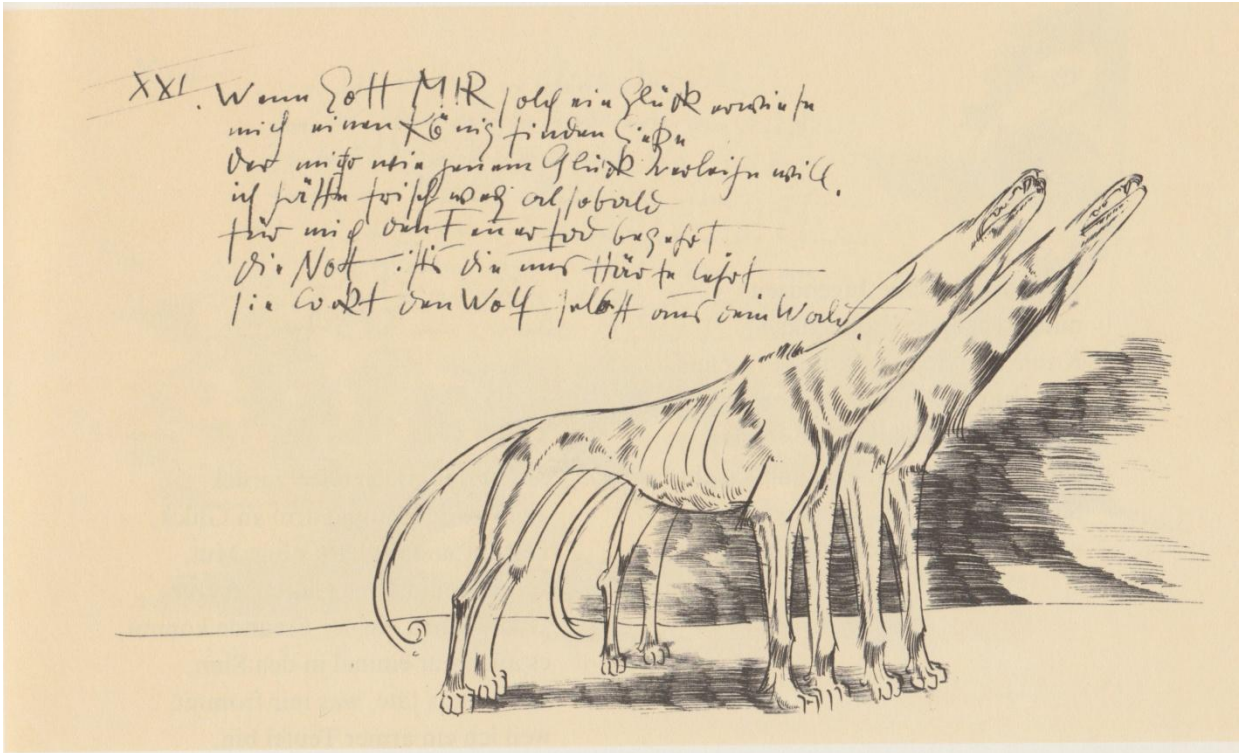 XXI. Wenn Gott MIR solch ein Glück erwiese
mich einen König finden ließe
der mir wie jenem Glück verleihen will.
ich hätte frisch weg alsobald
für mich den Feuertod begehrt
die Nott ists die uns Härte lehrt
sie lockt den Wolf selbst aus dem Wald